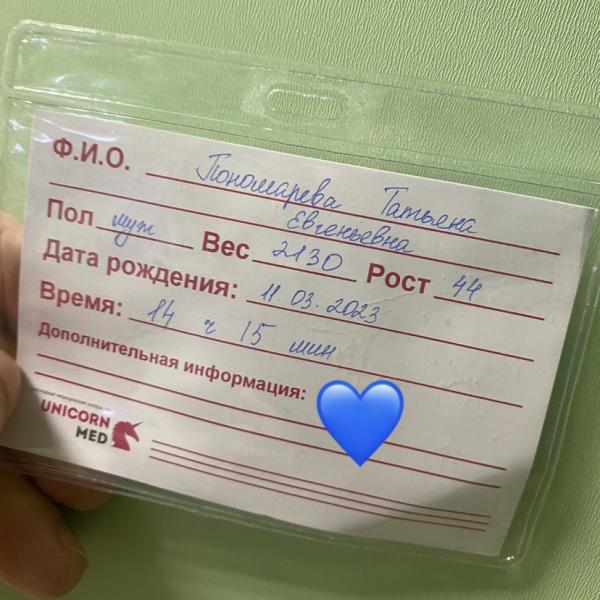 Ф.И.О. Пономарева Татьяна
Евгеньевна
Пол муж Вес 2130 Рост 44
Дата рождения: 11.03.2023
Время: 14 ч 15 мин
Дополнительная информация:
UNICORN
MED